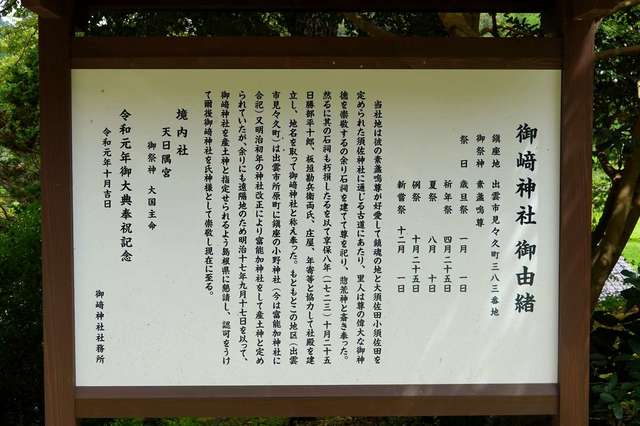 御﨑神社御由緒
鎮座地　出雲市見々久町三八三番地
御祭神　素盞嗚尊
祭　日　歳旦祭　一月　一日
祈年祭　四月二十五日
夏祭　八月　十日
例祭　十月二十五日
新嘗祭　十二月　一日
当社地は彼の素盞嗚尊が好愛して鎮魂の地と大須佐田小須佐田を
定められた須佐神社に通じる古道にあたり、里人は尊の偉大な御神
徳を崇敬するの余り石祠を建てて尊を祀り、惣荒神と斎き奉った。
然るに其の石祠も朽損したるを以て享保八年(一七二三)十月二十五
日勝部平十郎、板垣勘兵衛両氏、庄屋、年寄等と協力して社殿を建
立し、地名を取って御﨑神社と称え奉った。もともとこの地区(出雲
市見々久町)は出雲市所原町に鎮座の小野神社(今は富能加神社に
合祀)又明治初年の神社改正により富能加神社をして産土神と定め
られていたが、余りにも遠隔地のため明治十七年九月十七日を以って、
御﨑神社を産土神と指定せられるよう島根県に懇請し、認可をうけ
て爾後御﨑神社を氏神様として崇敬し現在に至る。
境内社
天日隅宮
御祭神　大国主命
令和元年御大典奉祝記念
令和元年十月吉日
御﨑神社社務所